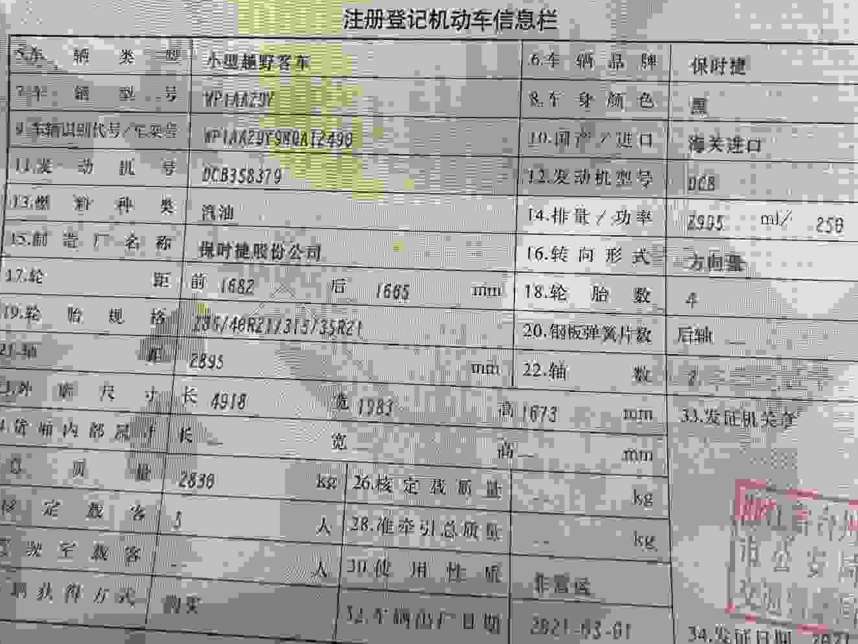 注册登记机动车信息栏
5.车辆类型 小型越野客车 6.车辆品牌 保时捷
7.车辆型号 WP1AAZ9Y 8.车身颜色 黑
9.车辆识别代号/车架号 10.国产/进口 海关进口
11.发动机号 DCB358379 12.发动机型号 DCB
13.燃料种类 汽油 14.排量/功率 2995 ml/ 250
15.制造厂名称 保时捷股份公司 16.转向形式 方向盘
17.轮距 前 1682 后 1665 mm 18.轮胎数 4
19.轮胎规格 285/40R21/315/35R21 20.钢板弹簧片数 后轴
21.轴距 2895 mm 22.轴数 2
23.外廓尺寸 长 4918 宽 1983 高 1673 mm 33.发证机关章
货厢内部尺寸 长 宽 高 mm
总质量 2830 kg 26.核定载质量 kg
核定载客 5 人 28.准牵引总质量 kg
驾驶室载客 人 30.使用性质 非营运
车辆获得方式 购买 32.车辆出厂日期 2021-03-01
34.发证日期
市公安局